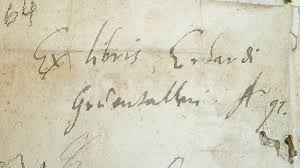 64
Ex libris Erhardi
Grüentalleri A 91.